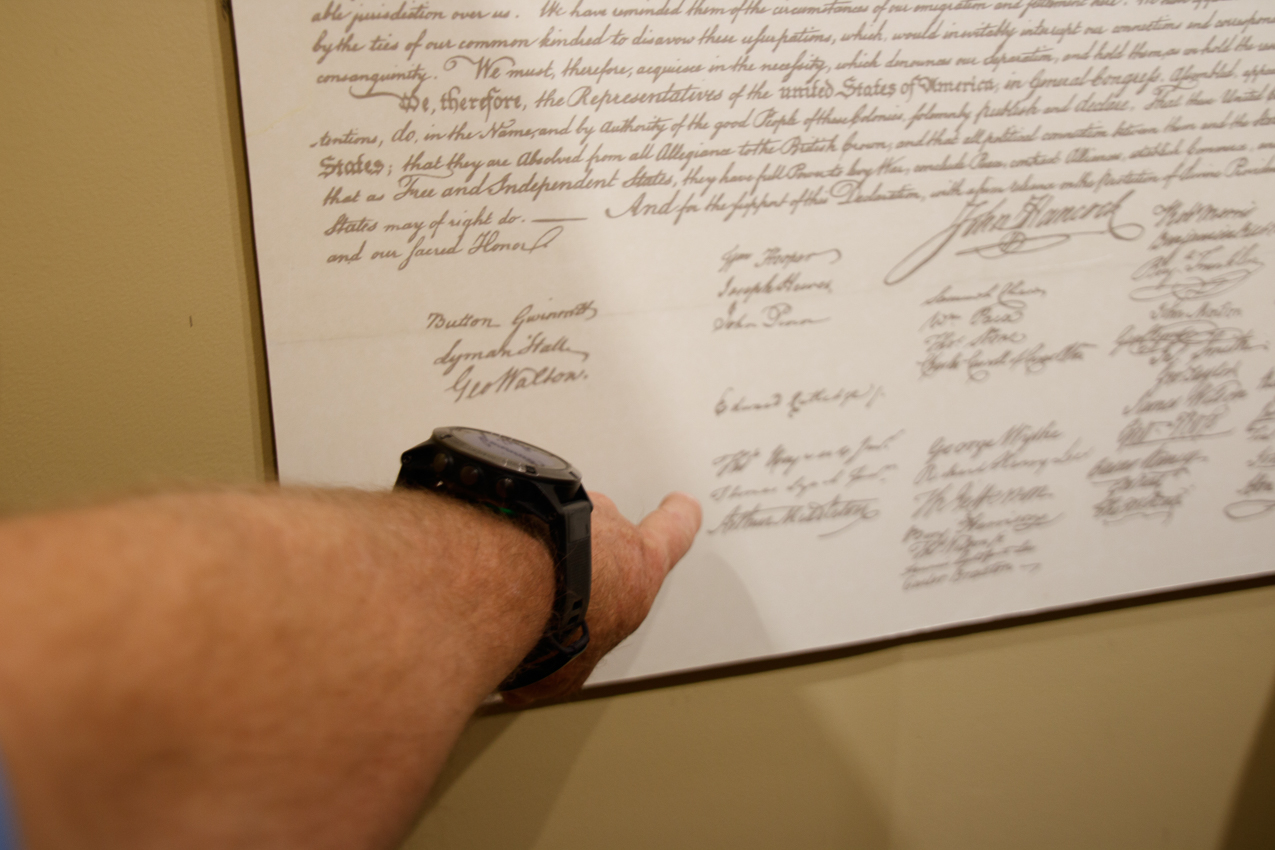 able jurisdiction over us. We have reminded them of the circumstances of our emigration and settlement here. We have
by the ties of our common kindred to disavow these usurpations, which, would inevitably interrupt our connections and
consanguinity. We must, therefore, acquiesce in the necessity, which denounces our Separation, and hold them, as we hold the
We, therefore, the Representatives of the united States of America, in General Congress, Assembled,
tentions, do, in the Name, and by Authority of the good People of these Colonies, solemnly publish and declare, That these United
States; that they are Absolved from all Allegiance to the British Crown, and that all political connection between them and the
that as Free and Independent States, they have full Power to levy War, conclude Peace, contract Alliances, establish Commerce,
States may of right do. — And for the support of this Declaration, with a firm reliance on the protection of divine
and our sacred Honor
John Hancock
Button Gwinnett
Lyman Hall
Geo Walton.
Wm Hooper
Joseph Hewes,
John Penn
Edward Rutledge /.
Thos Heyward Junr.
Thomas Lynch Junr.
Arthur Middleton
Samuel Chase
Wm. Paca
Thos. Stone
Charles Carroll of Carrollton
George Wythe
Richard Henry Lee
Th Jefferson
Benj Harrison
Thos Nelson jr.
Carter Braxton
Robt Morris
Benjamin Rush
John Morton
Geo Clymer
Jas. Smith
Geo. Taylor
James Wilson
Geo. Ross
Caesar Rodney
Geo Read